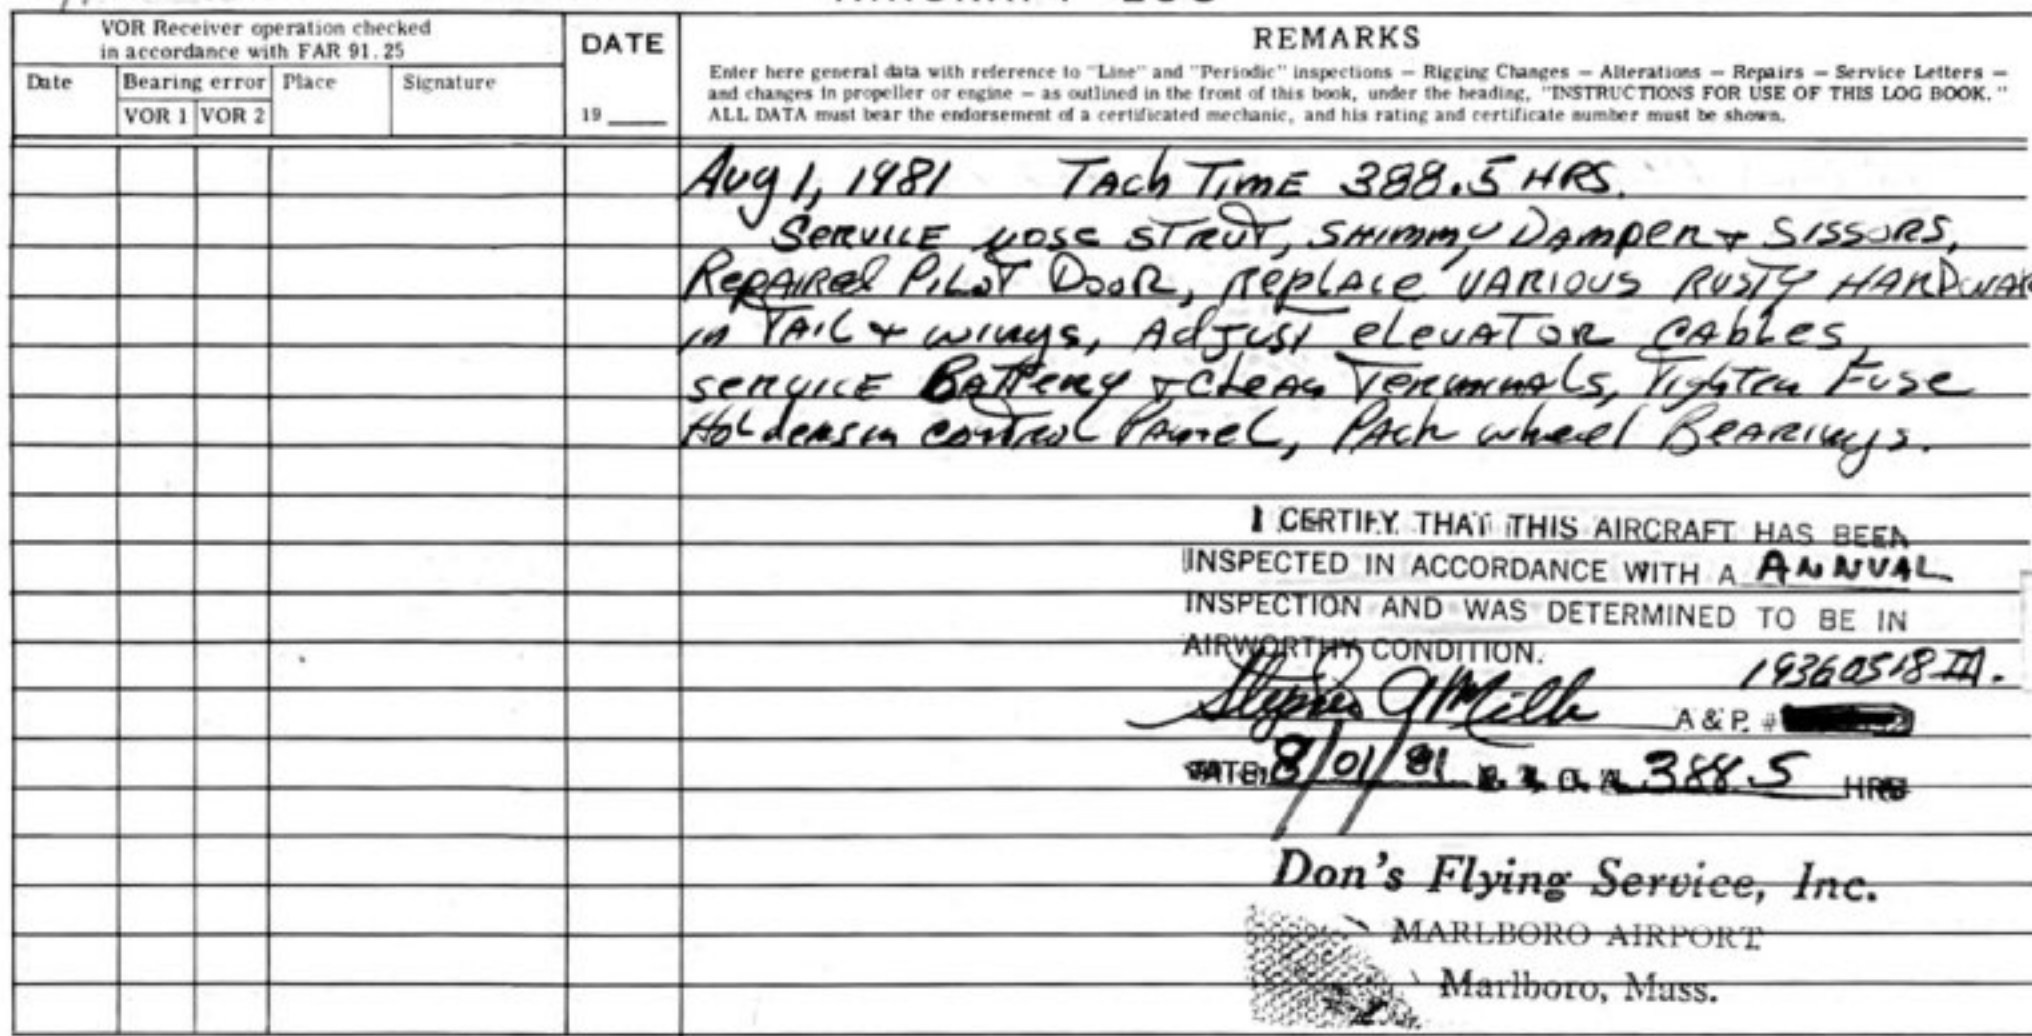 AIRCRAFT LOG
VOR Receiver operation checked
in accordance with FAR 91.25
Date
Bearing error
VOR 1
VOR 2
Place
Signature
DATE
19
REMARKS
Enter here general data with reference to "Line" and "Periodic" inspections — Rigging Changes — Alterations — Repairs — Service Letters —
and changes in propeller or engine — as outlined in the front of this book, under the heading, "INSTRUCTIONS FOR USE OF THIS LOG BOOK."
ALL DATA must bear the endorsement of a certificated mechanic, and his rating and certificate number must be shown.
Aug 1, 1981 Tach Time 388.5 HRS.
Service nose strut, shimmy Damper + Sissors,
Repaired Pilot Door, replace various rusty HARDWAR
in Tail + wings, Adjust elevator cables,
service Battery + clean Terminals, Tighten Fuse
Holders in control Pannel, Pack wheel Bearings.
I CERTIFY THAT THIS AIRCRAFT HAS BEEN
INSPECTED IN ACCORDANCE WITH A ANNUAL
INSPECTION AND WAS DETERMINED TO BE IN
AIRWORTHY CONDITION.
19360518 IA.
A & P. #
DATE 8/01/81 388.5 HRS
Don's Flying Service, Inc.
MARLBORO AIRPORT
Marlboro, Mass.